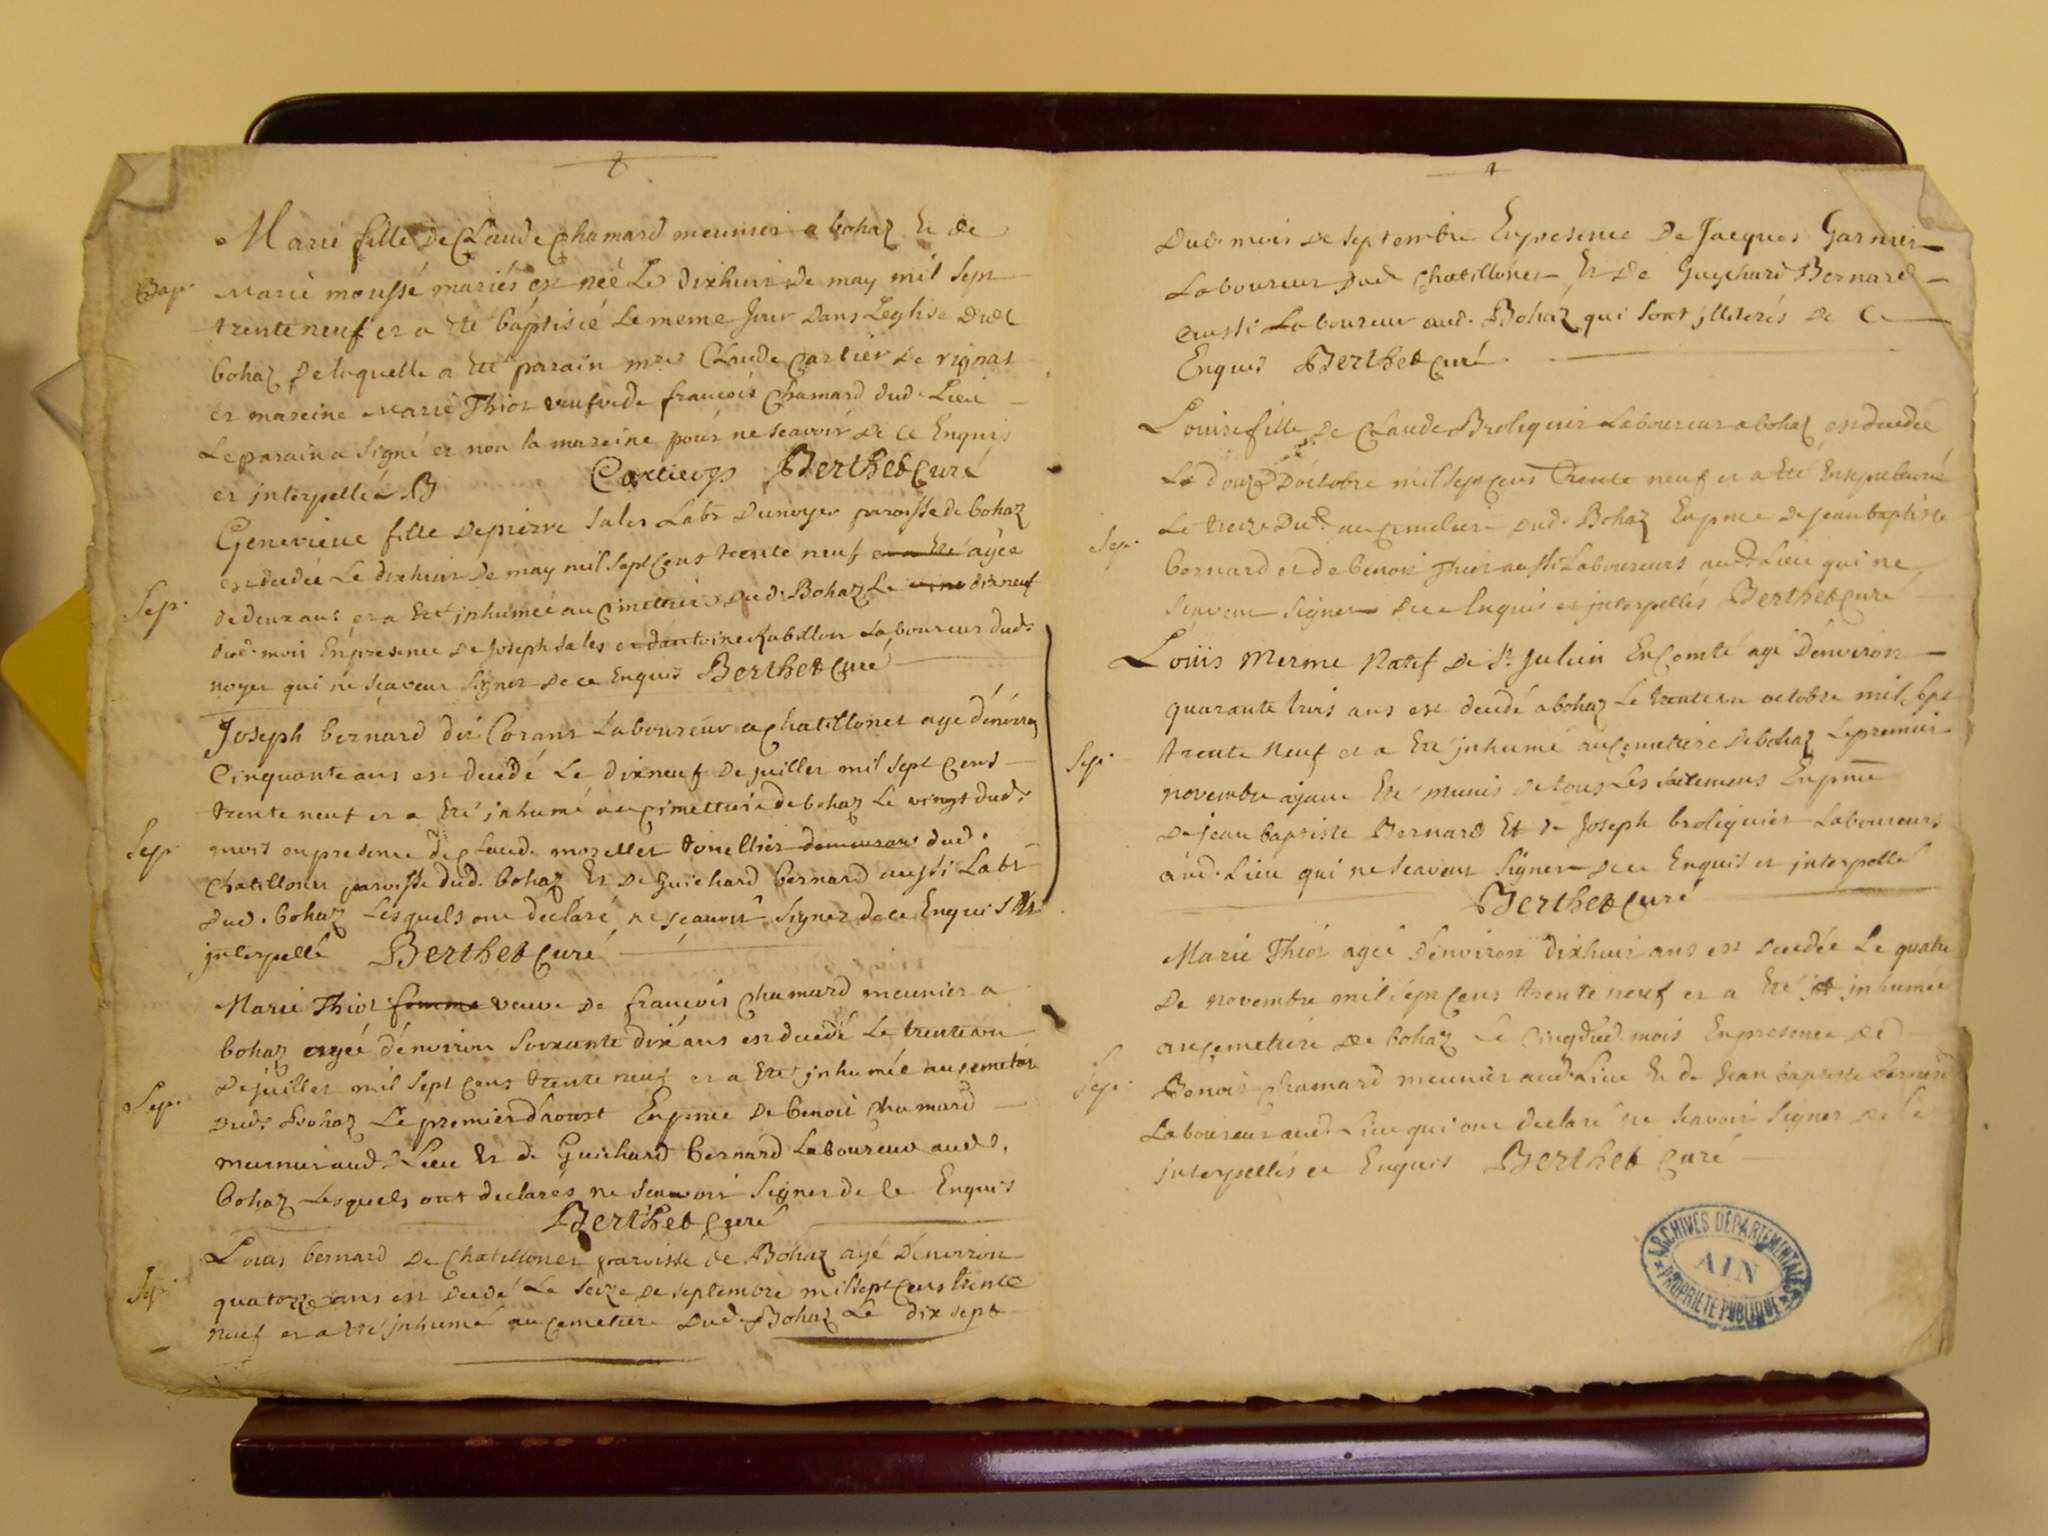 Marie fille de Claude Chamard meunier a bohaz Et de
Bap.
Marie moussé mariés est née Le dixhuit de may mil sept
trente neuf et a été baptisée le meme jour dans Leglise dud
bohaz de laquelle a été parain mre Claude Cartier de rignat
et mareine Marie Thiot veufve de francois Chamard dud. Lieu
Le parain a signé et non la mareine pour ne scavoir de ce Enquis
et interpellée
Berthet Curé
Genevieve fille de pierre Sales Labr Du noyer paroisse de bohaz
est decedée Le dixhuit de may mil Sept Cens trente neuf et a Eté agée
Sep.
de deux ans et a Eté inhumée au Cimettiere dud. Bohaz Le dixneuf
dud. mois En presence de Joseph Sales et dantoine Rabillon Laboureur dud.
noyer qui ne scavent signer de ce Enquis Berthet Curé
Joseph bernard dit Corant Laboureur a Chatillonet age denviron
Cinquante ans est decedé Le dixneuf de juillet mil sept Cens
trente neuf et a Eté inhumé au Cimettiere de bohaz Le vingt dud.
Sep.
mois en presence de Claude morellet tonellier demeurant dud.
Chatillonet paroisse dud. bohaz Et de Guichard bernard aussi Labr
dud. bohaz Lesquels ont declaré ne scavoir signer de ce Enquis Et
interpellé Berthet Curé
Marie Thiot femme veuve de francois Chamard meunier a
bohaz agée denviron Soixante dix ans est decedé Le trente un
de juillet mil Sept Cens trente neuf et a Eté inhumée au semetiere
Sep.
dud. Bohaz Le premier daoust En pnce de benoit Chamard
meunier aud. Lieu Et de Guichard bernard Laboureur aud.
bohaz Lesquels ont declarés ne scavoir signer de Ce Enquis
Berthet Curé
Louis bernard de Chatillonet paroisse de Bohaz agé denviron
Sep.
quatorze ans est decedé Le seize de septembre mil sept Cens trente
neuf et a été inhumé au Cemetiere dud. Bohaz Le dix sept
Dud. mois de septembre En presence de Jacques Garnier
Laboureur dud Chatillonet Et de Guychard Bernard
aussi Laboureur aud. Bohaz qui sont jlliterés de Ce
Enquis Berthet Curé
Louise fille de Claude Broliquier Laboureur a bohaz est decedée
Le douze D'octobre mil sept Cens Trente neuf et a Eté Ensepulturée
Sep.
Le treize Dud. au Cemetiere dud. Bohaz En pnce de jean baptiste
bernard et de benoit Thiot aussi Laboureurs aud. Lieu qui ne
scavent signer de ce Enquis et interpellés Berthet Curé
Louis Merme Natif de St Julien En Comté agé denviron
quarante trois ans est decedé a bohaz Le trente un octobre mil sept
Sep.
trente Neuf et a Eté inhumé au Cemetiere de bohaz Le premier
novembre ajant Eté munis de tous Les sacremens En pnce
de jean baptiste Bernard Et de Joseph broliquier Laboureurs
aud. Lieu qui ne scavent signer de ce Enquis et interpellé
Berthet Curé
Marie Thiot agée denviron dixhuit ans est decedée Le quatre
de novembre mil sept Cens trente neuf et a Eté inhumée
au Cemetiere de bohaz Le Cinq dud. mois En presence de
Sep.
Benoit Chamard meunier aud. Lieu Et de Jean baptiste bernard
Laboureur aud. Lieu qui ont declaré ne scavoir signer de Ce
interpellés et Enquis Berthet Curé
ARCHIVES DEPARTEMENTALES
AIN
PROPRIETE PUBLIQUE